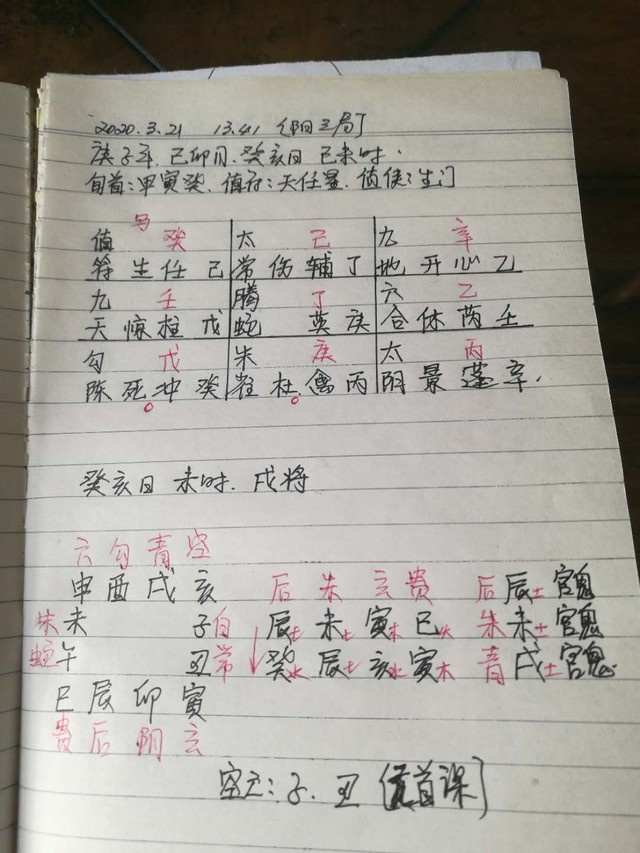 2020.3.21 13.41 (阳三局]
庚子年.己卯月.癸亥日 己未时.
旬首:甲寅癸.值符:天任星.值使:生门
马
值 癸 太 己 九 辛
符生任己 常伤辅丁 地开心乙
九 壬 腾 丁 六 乙
天惊柱戊 蛇 英庚 合休芮壬
勾 戊 朱 庚 太 丙
陈死冲癸 雀杜禽丙 阴景蓬辛.
癸亥日 未时.戌将
六勾青空
申酉戌亥 后朱玄贵 后辰土官鬼
朱未 子白 辰土未土寅木巳火 朱未土官鬼
蛇午 丑常 癸水辰土亥水寅木 青戌土官鬼
巳辰卯寅
贵后阴玄
空亡:子.丑 [元首课]